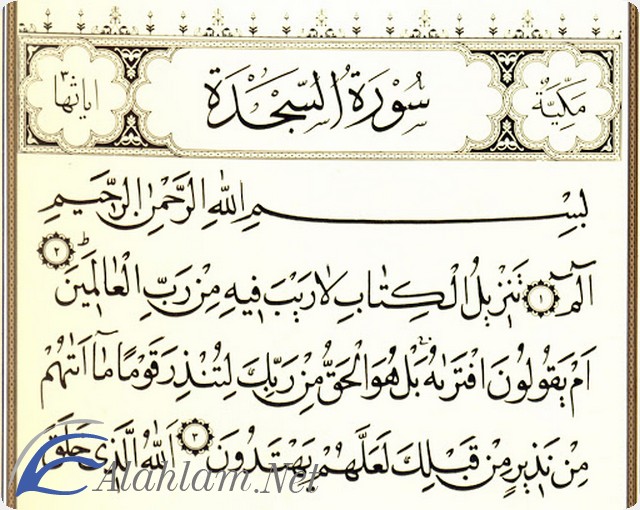 مَكِّيَّةٌ سُورَةُ السَّجْدَةِ اٰيَاتُهَا ٣٠
بِسْمِ اللّٰهِ الرَّحْمٰنِ الرَّحِيمِ
الٓمٓ ١ تَنْزِيلُ الْكِتَابِ لَا رَيْبَ فِيهِ مِنْ رَبِّ الْعَالَمِينَ ط ٢
اَمْ يَقُولُونَ افْتَرٰيهُ بَلْ هُوَ الْحَقُّ مِنْ رَبِّكَ لِتُنْذِرَ قَوْمًا مَٓا اَتٰيهُمْ
مِنْ نَذِيرٍ مِنْ قَبْلِكَ لَعَلَّهُمْ يَهْتَدُونَ ٣ اَللّٰهُ الَّذِى خَلَقَ
Alahlam.Net